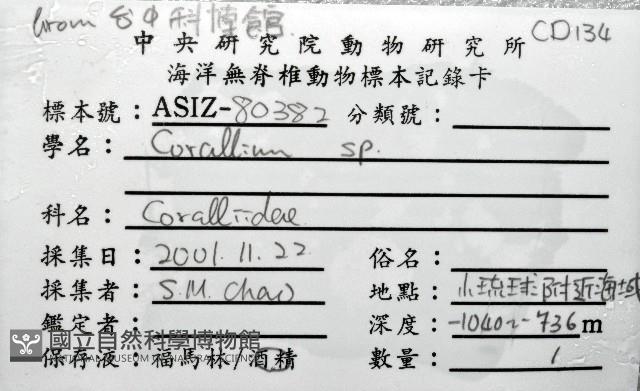 from 台中科博館 CD134
中央研究院動物研究所
海洋無脊椎動物標本記錄卡
標本號：ASIZ-80382 分類號：
學名：Corallium sp.
科名：Coralliidae
採集日：2001.11.22 俗名：
採集者：S.M. Chao 地點：小琉球附近海域
鑑定者： 深度：-1040~-736m
國立自然科學博物館
NATIONAL MUSEUM OF NATURAL SCIENCE
保存液：福馬林/酒精 數量：1